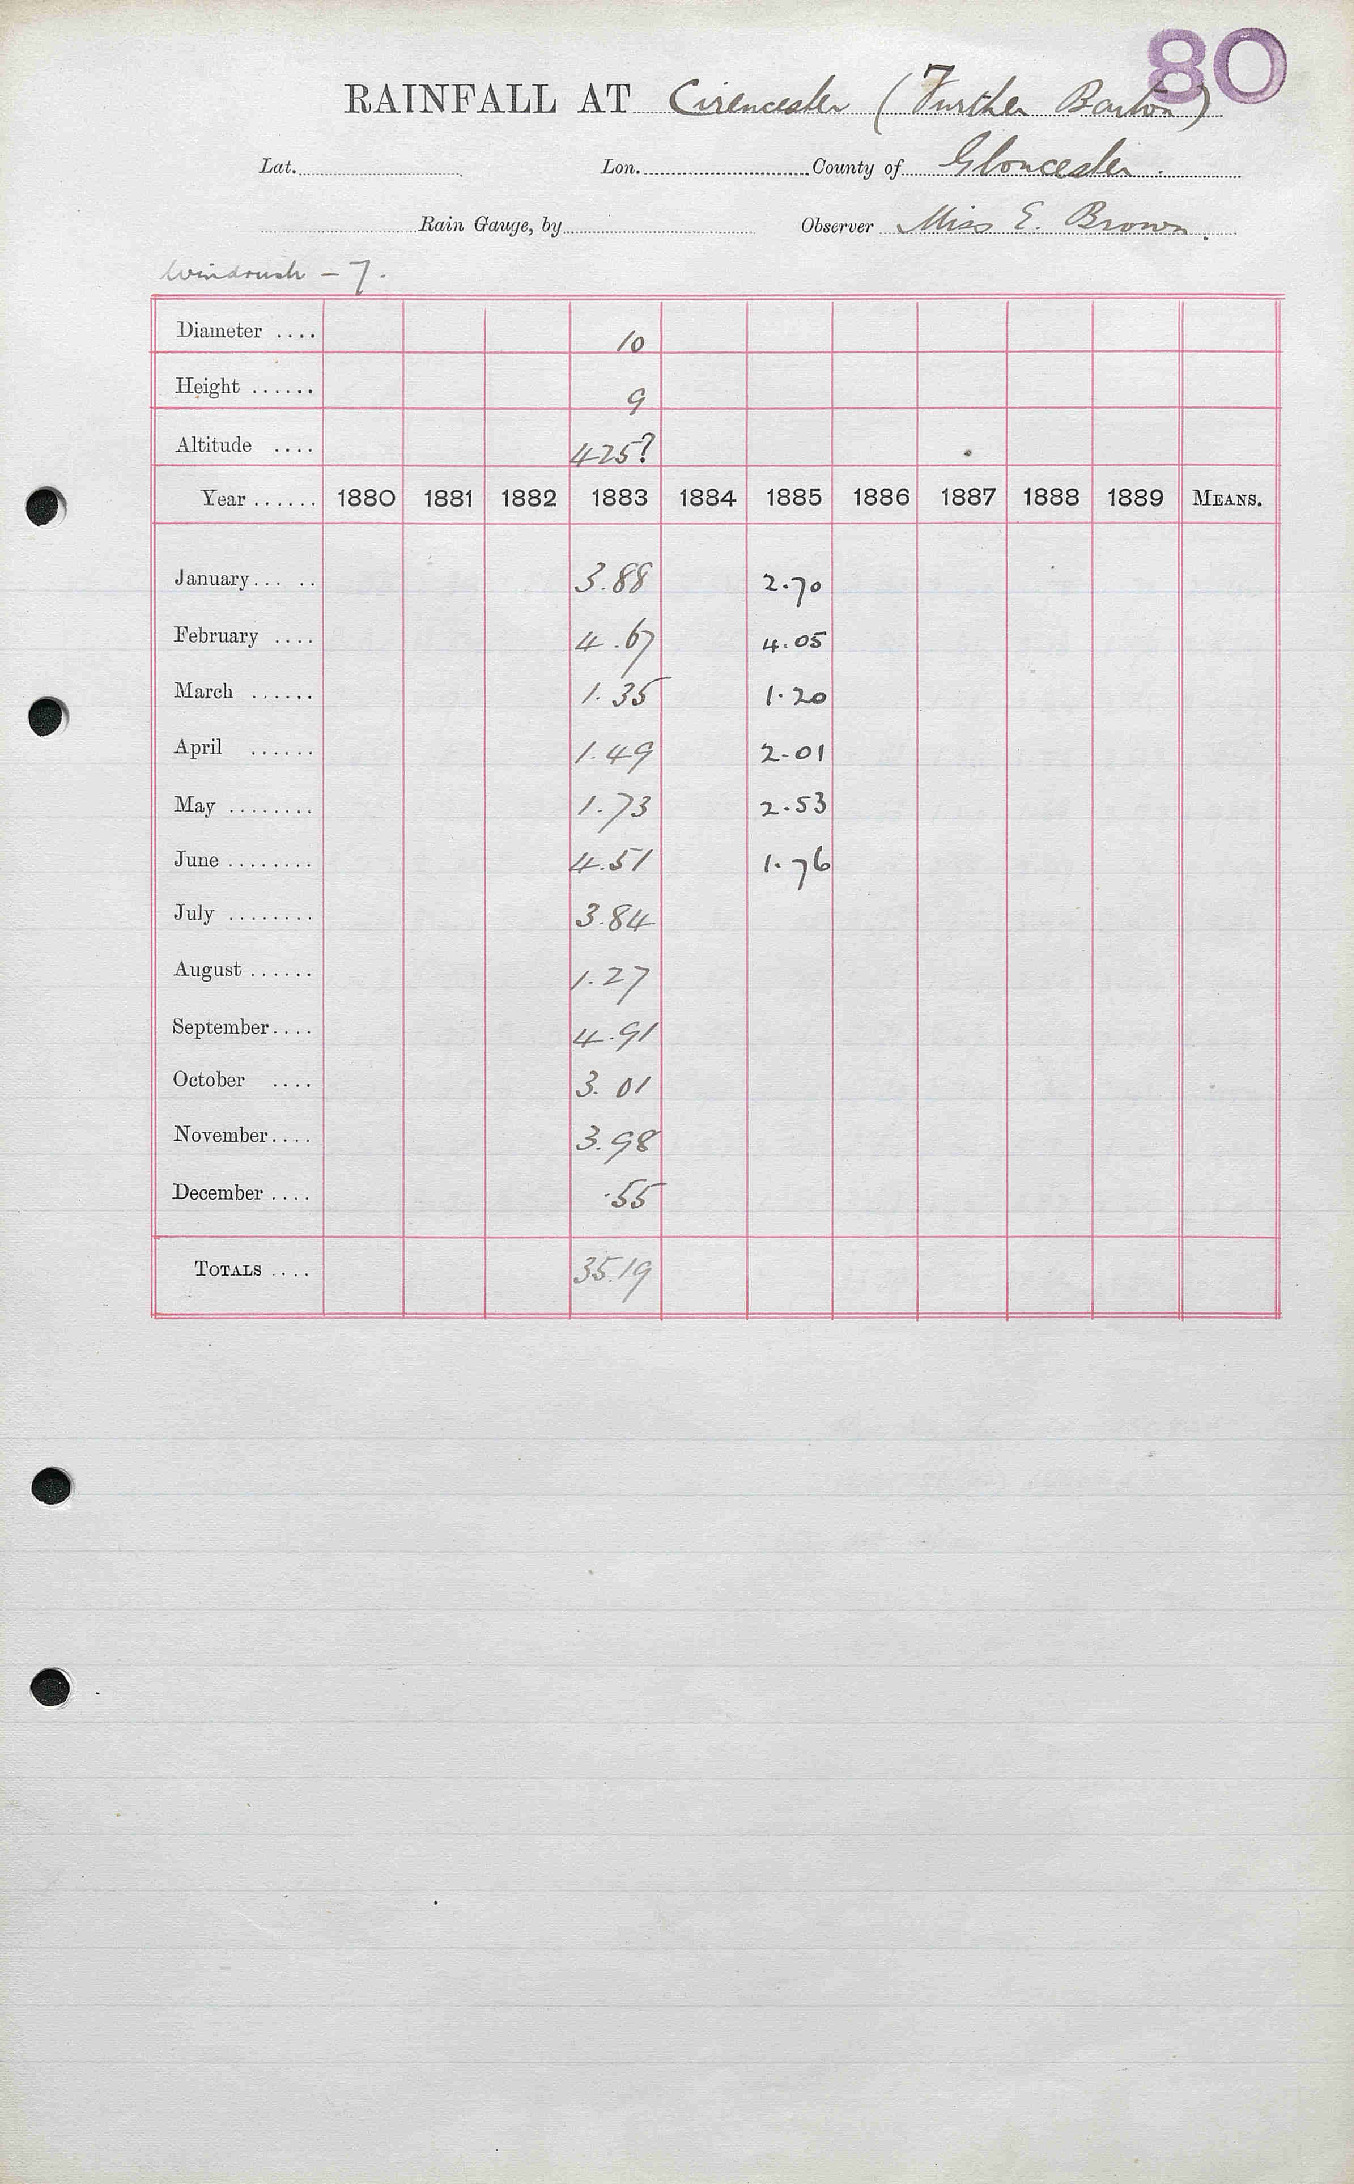 80
RAINFALL AT Cirencester (Further Barton)
Lat. Lon. County of Gloucester.
Rain Gauge, by Observer Miss E. Brown.
Windrush – 7.
Diameter .... 10
Height ...... 9
Altitude .... 425?
Year ...... 1880 1881 1882 1883 1884 1885 1886 1887 1888 1889 MEANS.
January... .. 3.88 2.70
February .... 4.67 4.05
March ...... 1.35 1.20
April ...... 1.49 2.01
May ........ 1.73 2.53
June ........ 4.51 1.76
July ........ 3.84
August ...... 1.27
September.... 4.91
October .... 3.01
November.... 3.98
December .... .55
TOTALS .... 35.19